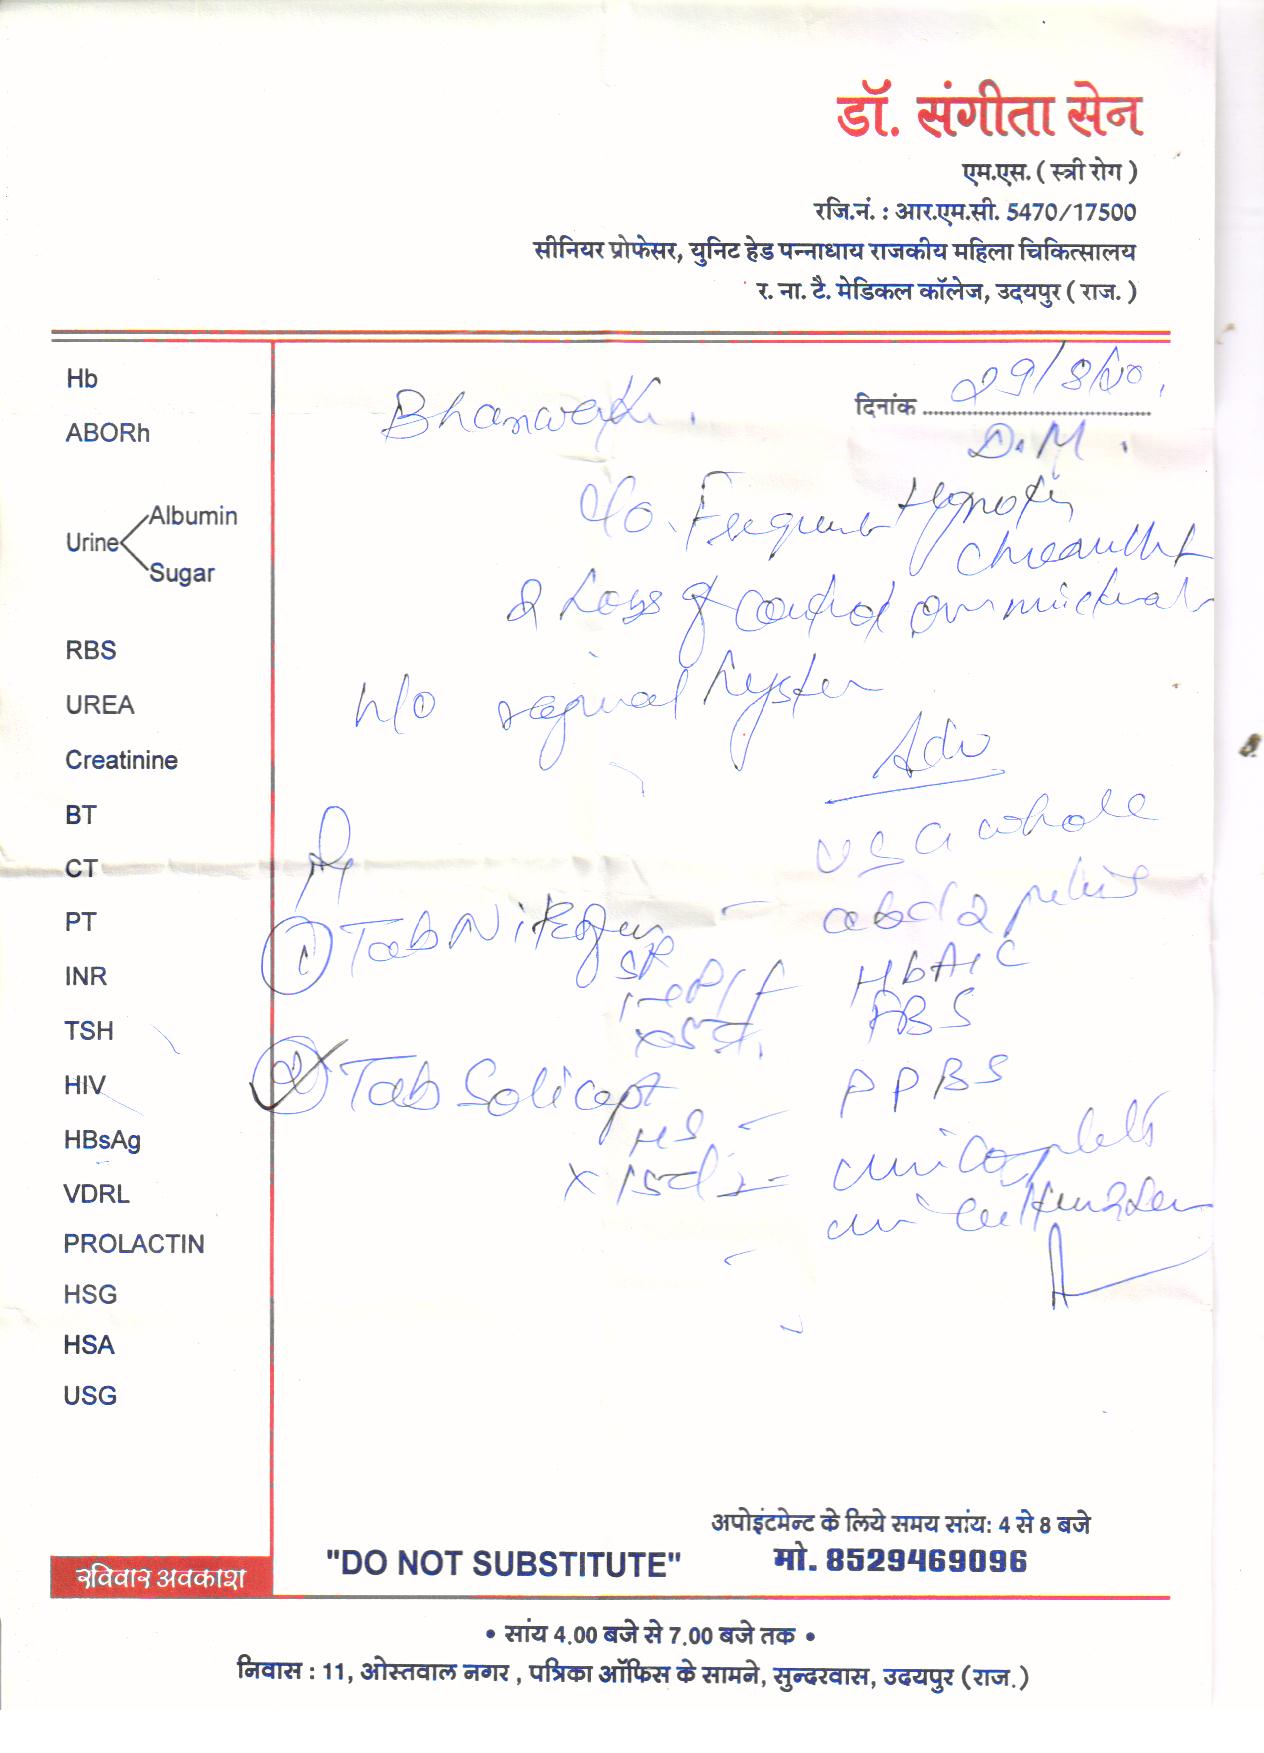 डॉ. संगीता सेन
एम.एस. ( स्त्री रोग )
रजि.नं. : आर.एम.सी. 5470/17500
सीनियर प्रोफेसर, युनिट हेड पन्नाधाय राजकीय महिला चिकित्सालय
र. ना. टै. मेडिकल कॉलेज, उदयपुर ( राज. )
Hb
ABORh
Urine
Albumin
Sugar
RBS
UREA
Creatinine
BT
CT
PT
INR
TSH
HIV
HBsAg
VDRL
PROLACTIN
HSG
HSA
USG
रविवार अवकाश
दिनांक
D.M.
c/o. Frequent
& Loss of control over
h/o vaginal hyster
Adv
USG whole
abd & pelvis
HbA1C
FBS
PPBS
① Tab
SR
② Tab Solicept
HS
x 15d
अपोइंटमेन्ट के लिये समय सांय: 4 से 8 बजे
"DO NOT SUBSTITUTE" मो. 8529469096
• सांय 4.00 बजे से 7.00 बजे तक •
निवास : 11, ओस्तवाल नगर , पत्रिका ऑफिस के सामने, सुन्दरवास, उदयपुर (राज.)